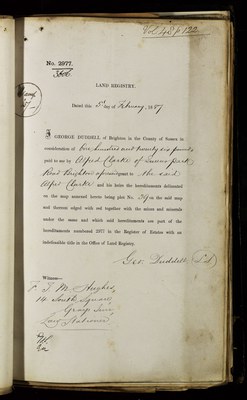 Vol. 48 p 122
No. 2977.
LAND REGISTRY.
Dated this 5th day of February, 1887
I GEORGE DUDDELL of Brighton in the County of Sussex in
consideration of One hundred and twenty six pounds
paid to me by Alfred Clarke of Queens Park
Road Brighton grant to the said
Alfred Clarke and his heirs the hereditaments delineated
on the map annexed hereto being plot No. on the said map
and thereon edged with red together with the mines and minerals
under the same and which said hereditaments are part of the
hereditaments numbered 2977 in the Register of Estates with an
indefeasible title in the Office of Land Registry.
Geo. Duddell (L.S.)
Witness—
F. J. M. Hughes,
14 South Square,
Grays Inn,
Law Stationer